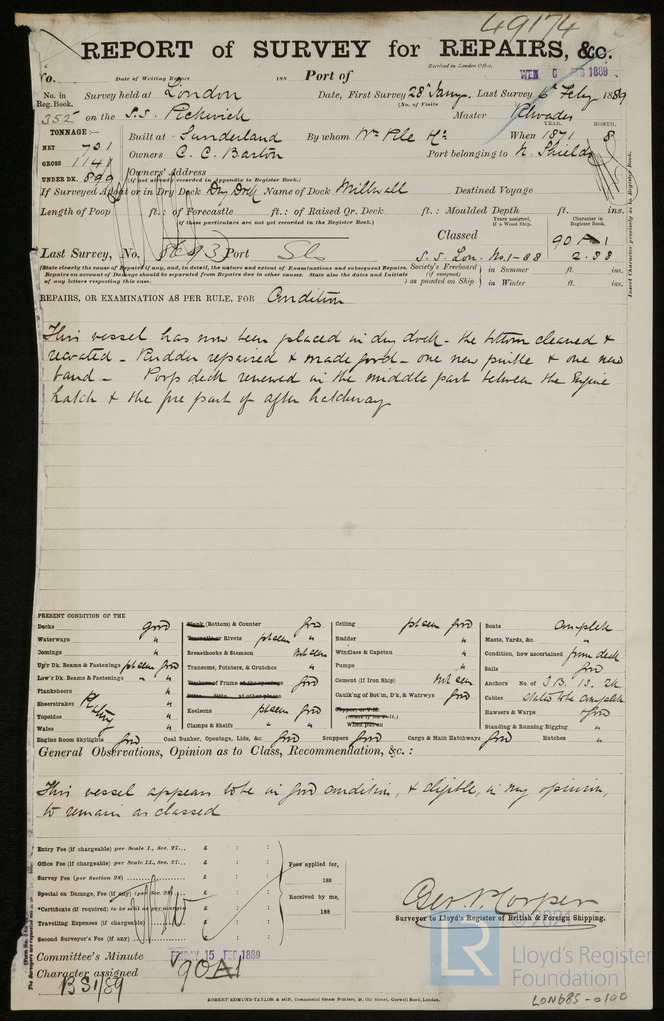 49174
REPORT of SURVEY for REPAIRS, &c.
Received in London Office,
No. Date of Writing Report 188 Port of WED 6 FEB 1889
No. in Reg. Book. Survey held at London Date, First Survey 28th Jany. Last Survey 6th Feby 1889
(No. of Visits
352 on the S.S. Pickwick Master Rhoades
TONNAGE:— Built at Sunderland By whom Wm Pile When 1871 8
YEAR. MONTH.
NET 721
GROSS 1141
UNDER DK. 899
Owners C. C. Barton Port belonging to N. Shields
Owners' Address
(if not already recorded in Appendix to Register Book.)
If Surveyed Afloat or in Dry Dock Dry Dock Name of Dock Millwall Destined Voyage
Length of Poop ft.: of Forecastle ft.: of Raised Qr. Deck ft.: Moulded Depth ft. ins.
(if these particulars are not yet recorded in the Register Book.)
Years assigned, if a Wood Ship.
Character in Register Book.
Insert Character precisely as in Register Book.
Classed 90 A 1
Last Survey, No. Port S.S. Lon. No. 1-88 2.88
(State clearly the cause of Repairs if any, and, in detail, the nature and extent of Examinations and subsequent Repairs.
Repairs on account of Damage should be separated from Repairs due to other causes. State also the dates and Initials
of any letters respecting this case.
Society's Freeboard (if assigned) as painted on Ship in Summer ft. ins.
in Winter ft. ins.
REPAIRS, OR EXAMINATION AS PER RULE, FOR Condition
This vessel has now been placed in dry dock - the bottom cleaned &
recoated - Rudder repaired & made good - one new pintle & one new
band - Poop deck renewed in the middle part between the Engine
hatch & the fore part of after hatchway
PRESENT CONDITION OF THE
Decks good
Waterways "
Comings "
Up'r Dk. Beams & Fastenings pt seen good
Low'r Dk. Beams & Fastenings " "
Planksheers
Sheerstrakes
Topsides
Wales
Plating "
Engine Room Skylights good
Plank (Bottom) & Counter good
Treenails or Rivets pt seen "
Breasthooks & Stemson Not seen
Transoms, Pointers, & Crutches "
Timbers of Frame at the openings good
Ditto Ditto at other places
Keelsons pt seen good
Clamps & Shelfs " "
Coal Bunker, Openings, Lids, &c. good
Ceiling pt seen good
Rudder "
Windlass & Capstan "
Pumps "
Cement (if Iron Ship) Not seen
Caulk'ng of Bot'm, D'k, & Watrwys good
Copper, or Y.M.
(State if on Felt.)
When put on
Scuppers good Cargo & Main Hatchways good
Boats Complete
Masts, Yards, &c. "
Condition, how ascertained from deck
Sails good
Anchors No. of 3 B. 1 S. 2 K
Cables stated to be complete
Hawsers & Warps good
Standing & Running Rigging "
Hatches "
General Observations, Opinion as to Class, Recommendation, &c.:
This vessel appears to be in good condition, & eligible, in my opinion,
to remain as classed
Entry Fee (if chargeable) per Scale I., Sec. 27... £ : :
Office Fee (if chargeable) per Scale II., Sec. 27... £ : :
Survey Fee (per Section 28) £ : :
Special on Damage, Fee (if any) (per Sec. 28) £ : :
*Certificate (if required) to be sent as per margin
Travelling Expenses (if chargeable) £ : :
Second Surveyor's Fee (if any) £ : :
Fees applied for,
188
Received by me,
188
Geo. P. Cooper
Surveyor to Lloyd's Register of British & Foreign Shipping.
© 2021
LR
Lloyd's Register
Foundation
Committee's Minute FRIDAY 15 FEB 1889
Character assigned 90A1
ROBERT EDMUND TAYLOR & SON, Commercial Steam Printers, 19, Old Street, Goswell Road, London.
LON685-0100